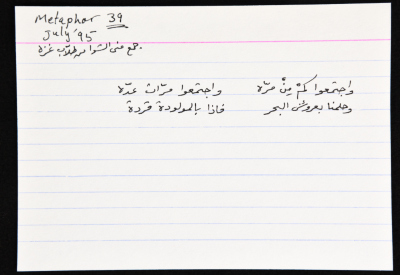 Metaphor 39
July '95
جمع منى الشوا من طلاب غزة.
واجتمعوا كمْ مِنْ مرّة واجتمعوا مرّات عدّة
وحلمنا بعروس البحر فاذا بالمولودة قردة